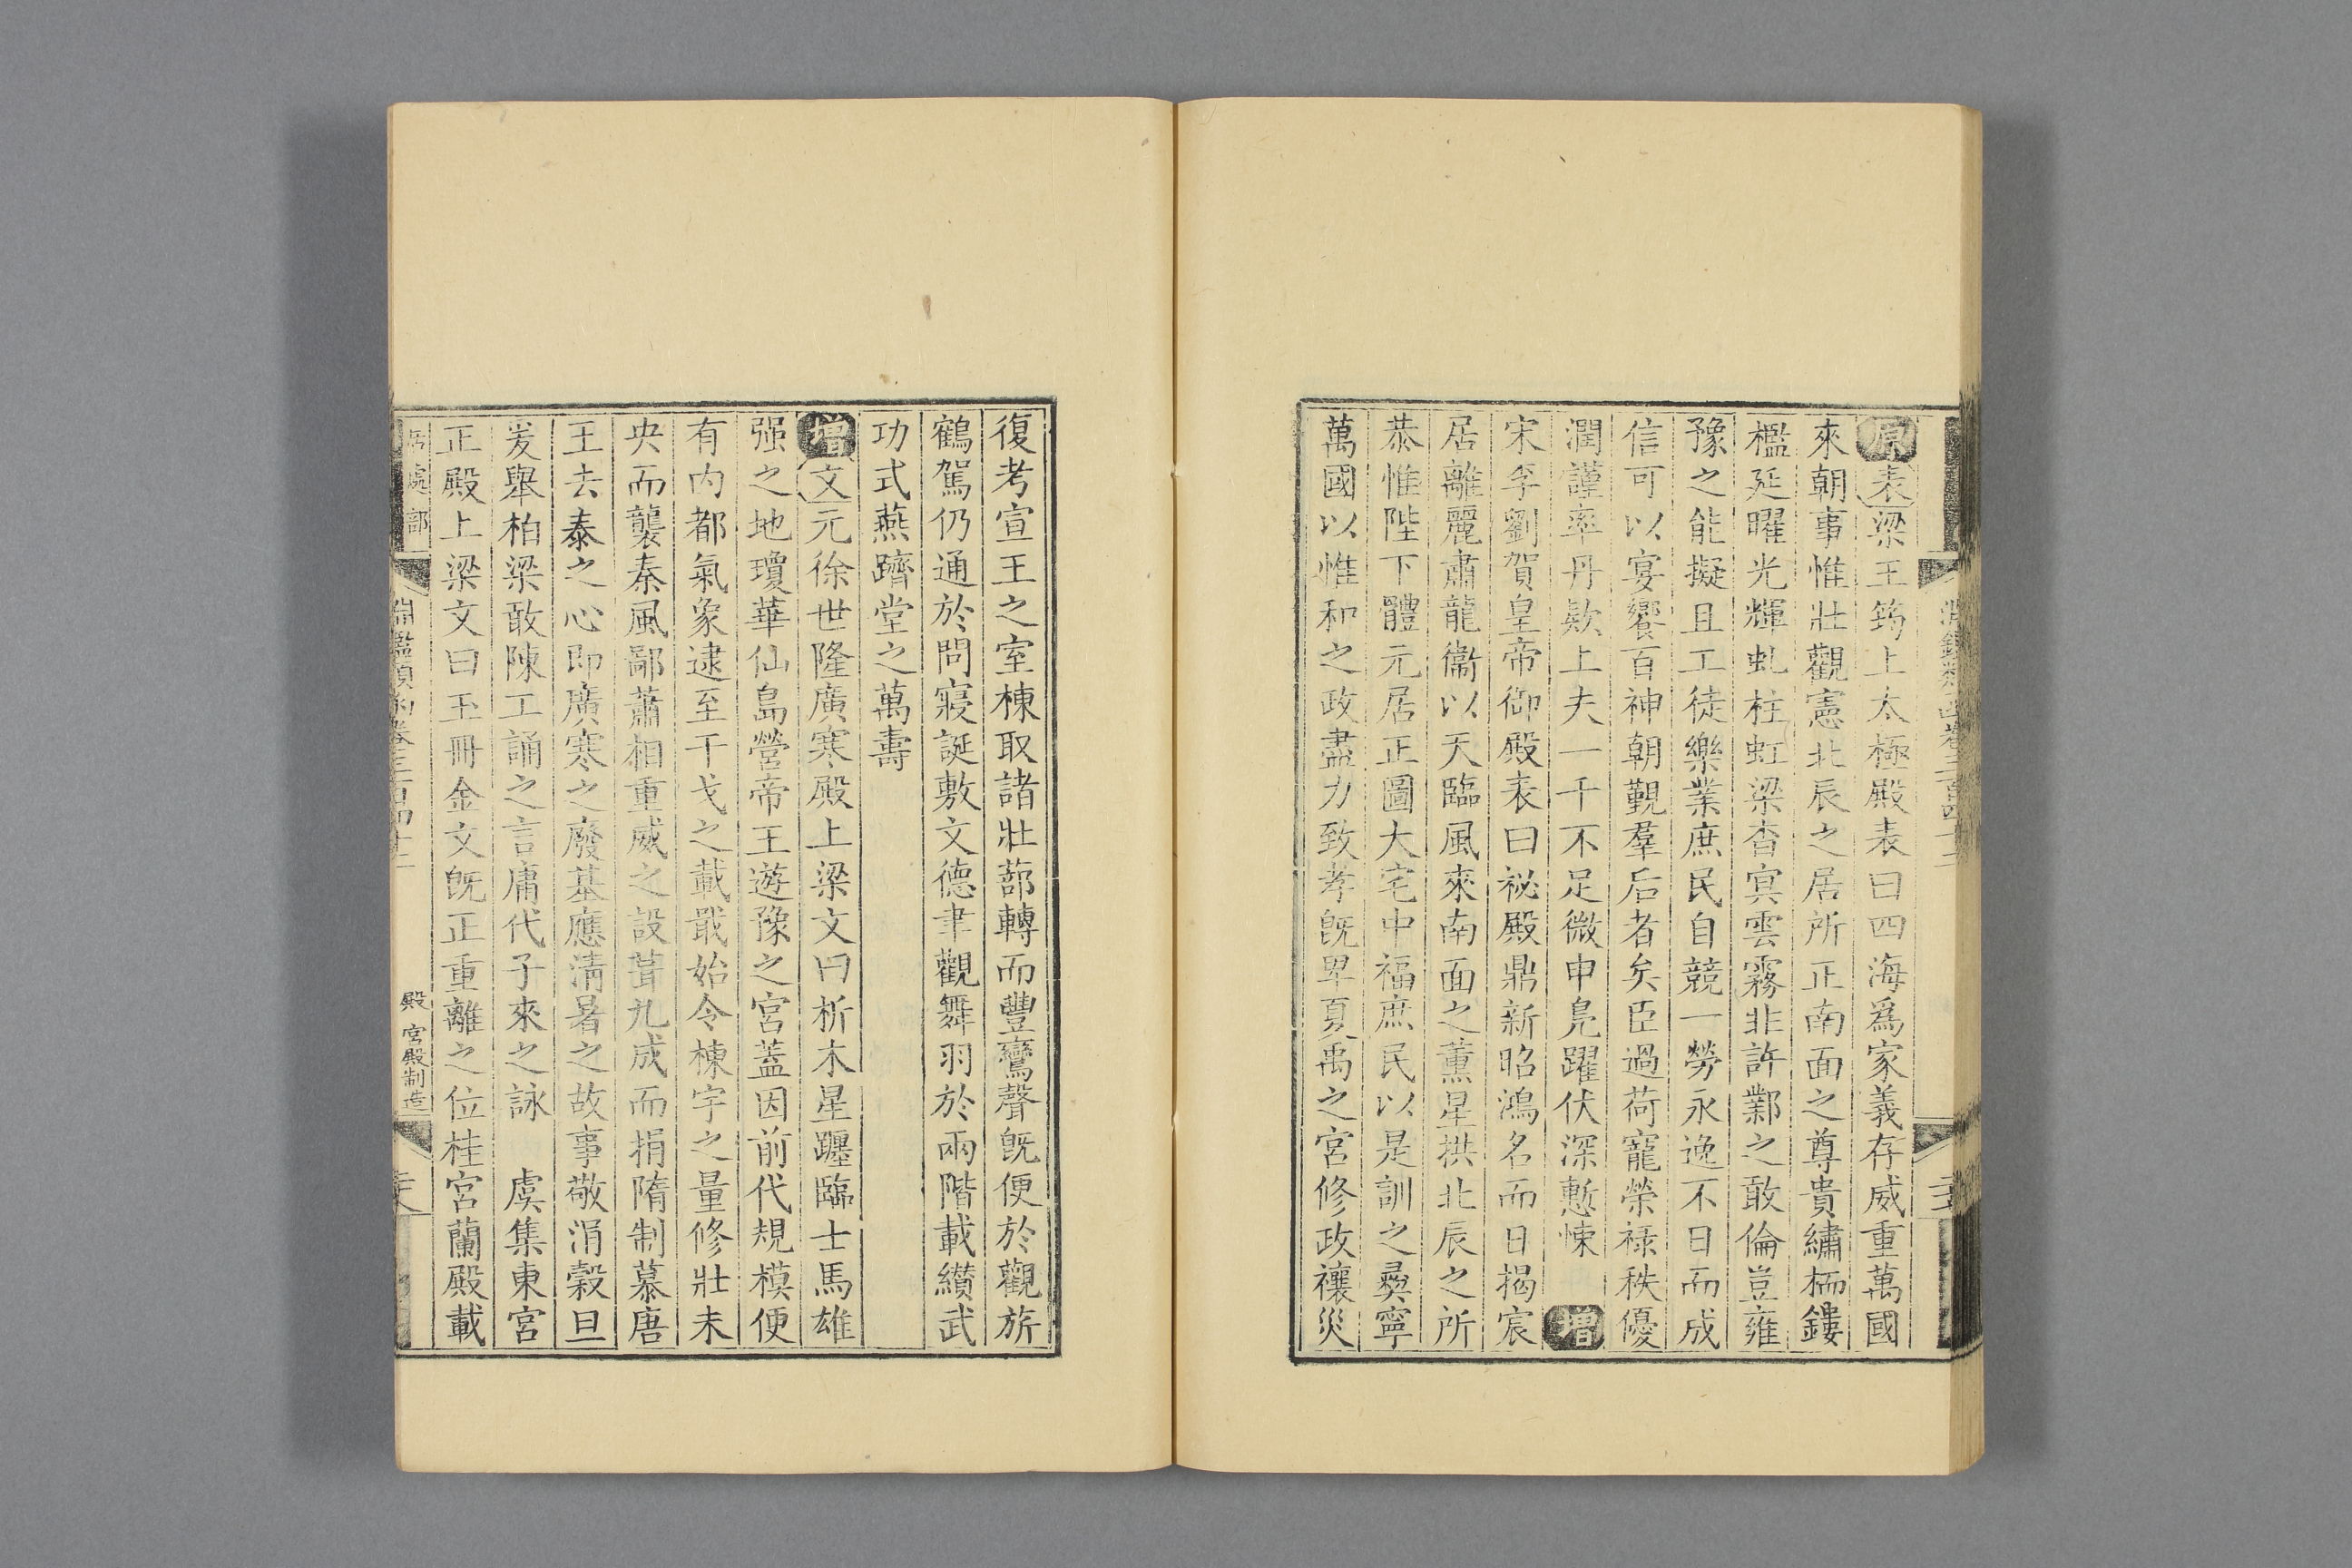 原表梁王筠上太極殿表曰四海爲家義存威重萬國
來朝事惟壯觀憲北辰之居所正南面之尊貴繡栭鏤
檻延曜光輝虬柱虹梁杳冥雲霧非許鄴之敢倫豈雍
豫之能擬且工徒樂業庶民自競一勞永逸不日而成
信可以宴饗百神朝觐羣后者矣臣過荷寵榮祿秩優
潤謹率丹欵上夫一千不足微申鳧躍伏深慙悚 增
宋李劉賀皇帝御殿表曰祕殿鼎新昭鴻名而日揭宸
居離麗肅龍衞以天臨風來南面之薰星拱北辰之所
恭惟陛下體元居正圖大宅中福庶民以是訓之彞寧
萬國以惟和之政盡力致孝旣卑夏禹之宮修政禳災
復考宣王之室棟取諸壯蔀轉而豐鸞聲旣便於觀旂
鶴駕仍通於問寢誕敷文德聿觀舞羽於兩階載纘武
功式燕躋堂之萬壽
增文元徐世隆廣寒殿上梁文曰析木星躔臨士馬雄
强之地瓊華仙島營帝王遊豫之宮蓋因前代規模便
有内都氣象逮至干戈之載戢始令棟宇之量修壯未
央而襲秦風鄙蕭相重威之設葺九成而捐隋制慕唐
王去泰之心即廣寒之廢基應清暑之故事敬涓穀旦
爰舉柏梁敢陳工誦之言庸代子來之詠 虞集東宮
正殿上梁文曰玉冊金文旣正重離之位桂宮蘭殿載
居處部
殿 宮殿制造